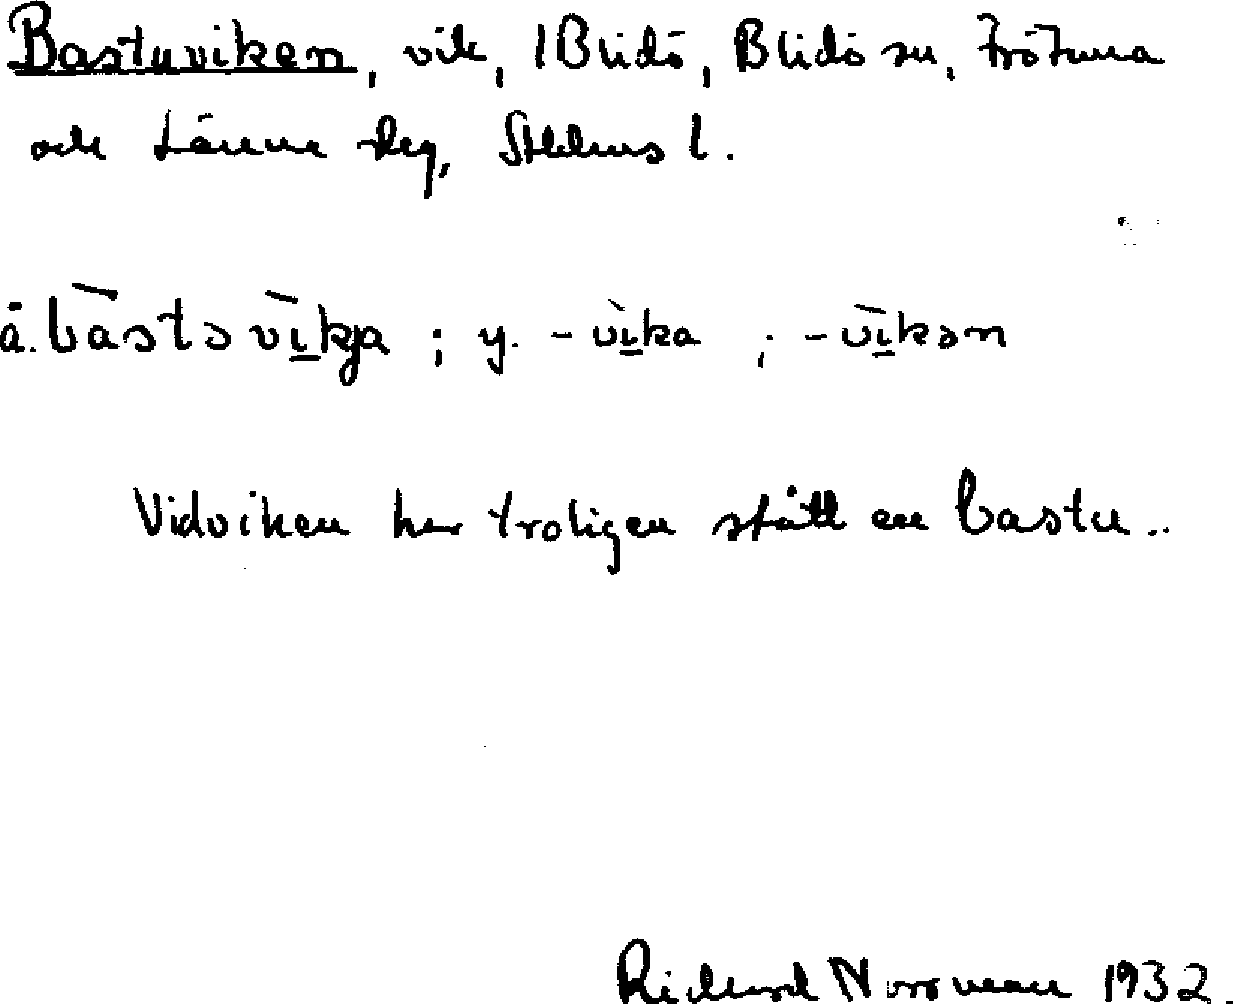 Bastuviken, vik, 1 Blidö, Blidö sn, Frötuna
och Länna skg, Sthlms l.
ä. bàstəvìkja ; y. -vìka ; -vìkən
Vid viken har troligen stått en bastu..
Richard Norrman 1932.